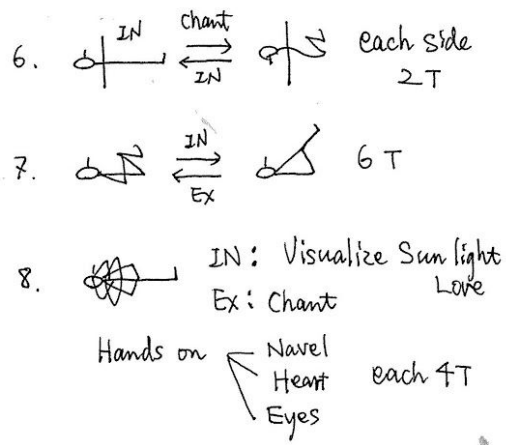 6. IN Chant IN each side
2 T
7. IN Ex 6 T
8. IN: Visualize Sun light
Love
Ex: Chant
Hands on Navel
Heart each 4T
Eyes